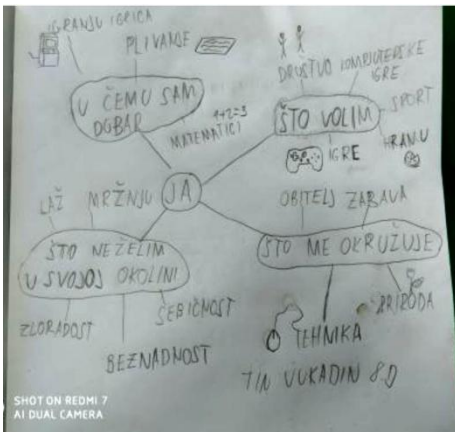 IGRANJU IGRICA
PLIVANJE
U ČEMU SAM
DOBAR
1+2=3
MATEMATICI
DRUŠTVO KOMPJUTERSKE
IGRE
ŠTO VOLIM
SPORT
HRANU
IGRE
JA
LAŽ
MRŽNJU
ŠTO NEŽELIM
U SVOJOJ OKOLINI
ZLORADOST
BEZNADNOST
SEBIČNOST
OBITELJ ZABAVA
ŠTO ME OKRUŽUJE
PRIRODA
TEHNIKA
TIN VUKADIN 8.D
SHOT ON REDMI 7
AI DUAL CAMERA